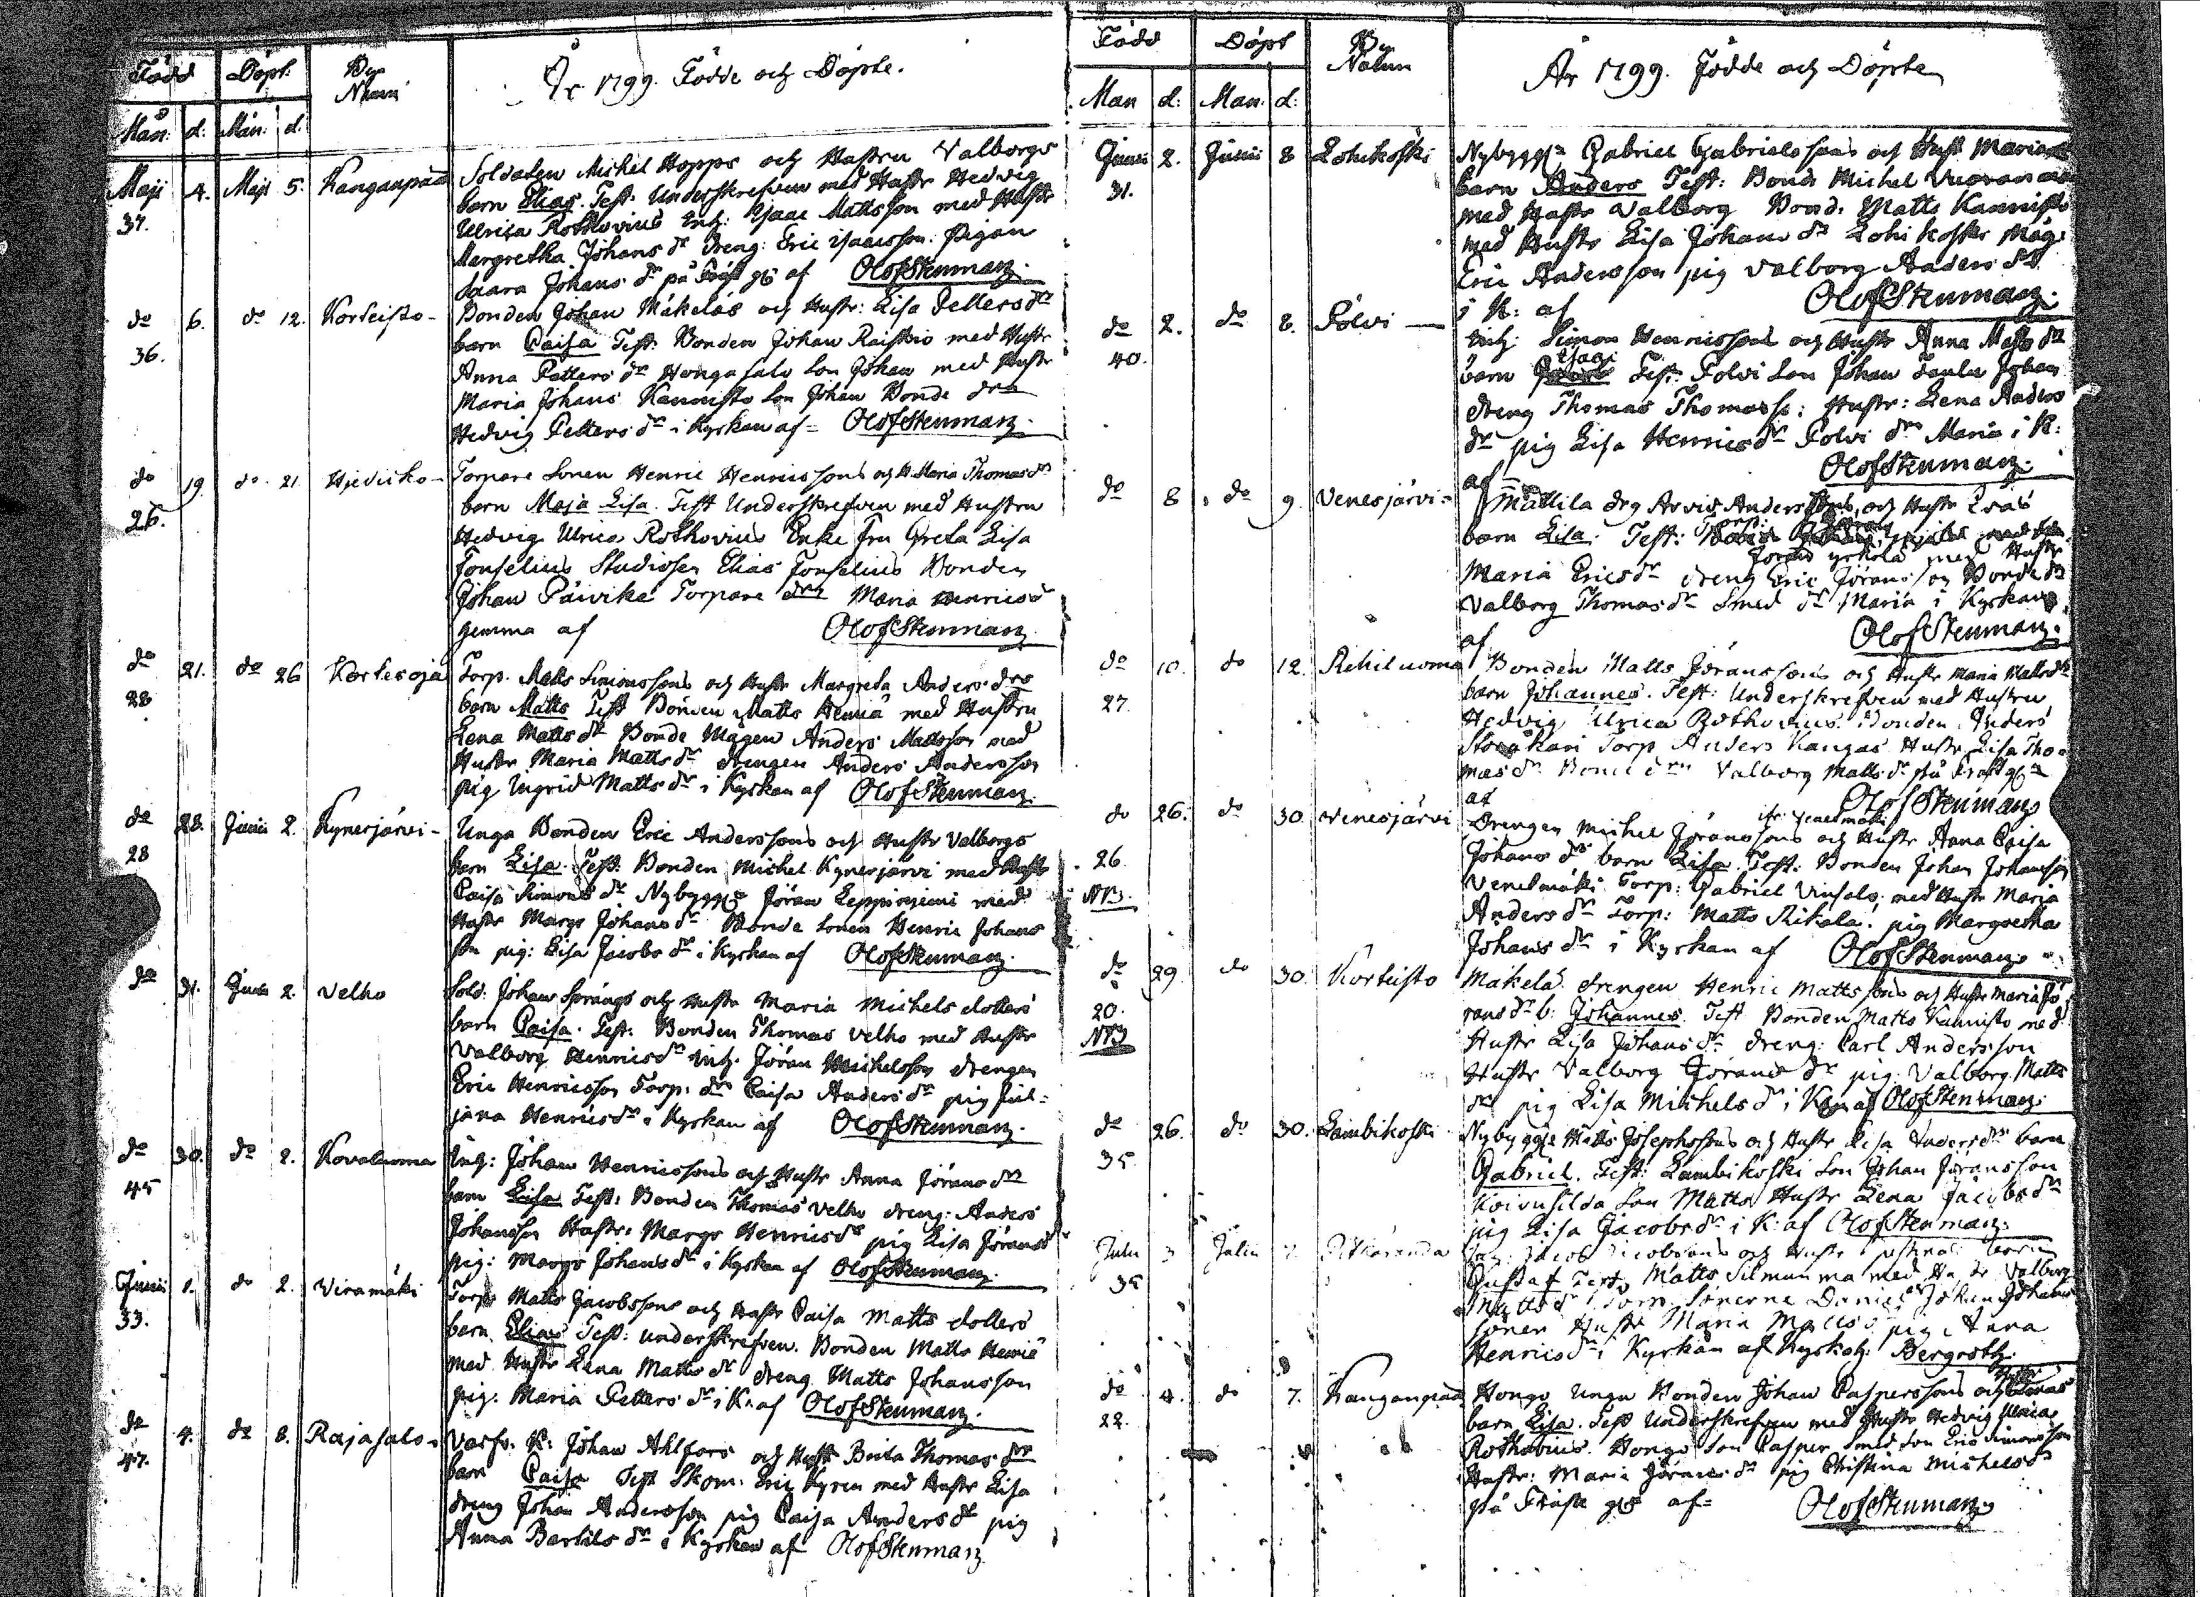 Född Döpt By Namn År 1799. Födde och Döpte.
Mån: d. Mån: d.
Maji 4. Maji 5. Kanganpää Soldaten Michel Hopps och Hustru Valborgs
37. barn Elias. Test: Underskrefven med Hustr Hedvig
Ulrica Rothovius Enk: Isaac Mattsson med Hustr
Margretha Johans dr dreng: Eric Isaacsson. Pigan
Saara Johans dr på af OlofStenman
do 6. do 12. Korteisto Bonden Johan Mäkeläs och Hustr: Lisa Petters dr
36. barn Caisa Test: Bonden Johan Raiskio med Hustr
Anna Petters dr Hongasalo Son Johan med Hustr
Maria Johans Kannisto Son Johan Bonde dra
Hedvig Petters dr i Kyrkan af OlofStenman
do 19 do 21 Torpare Sonen Henric Henricssons och H. Maria Thomas dr
26. barn Maja Lisa. Test Underskrefven med Hustru
Hedvig Ulrica Rothovius Enke Fru Greta Lisa
Forselius Studiosen Elias Forselius Bonden
Johan Päivike Torpare dra Maria Henrics d
hemma af OlofStenman
do 21. do 26 Kortesoja Torp. Matts Simonssons och Hustr Margreta Anders dra
28 barn Matts Test Bonden Matts Heiniä med Hustru
Lena Matts dr Bonde Mågen Anders Mattsson med
Hustr Maria Matts dr drengen Anders Andersson
pig Ingrid Matts dr i Kyrkan af OlofStenman
do 28. Junii 2. Kynesjärvi Unga Bonden Eric Anderssons och Hustr Valborgs
28 barn Lisa. Test: Bonden Michel Kynesjärvi med Hustr
Caisa Simons dr Nybygg Jöran Leppiniemi med
Hustr Margr Johans dr Bonde Sonen Henric Johans
son pig: Lisa Jacobs dr i Kyrkan af OlofStenman
do 31. Junii 2. Velho Sold: Johan Sprängs och Hustr Maria Michels dotters
barn Caisa. Test: Bonden Thomas Velho med Hustr
Valborg Henrics dr Inh. Jöran Michelsson drengen
Eric Henricsson Torp: dra Caisa Anders dr pig Jul=
jana Henrics dr i Kyrkan af OlofStenman
do 30. do 2. Kovaluoma Inh: Johan Henricssons och Hustr Anna Jörans dr
45 barn Lisa Test: Bonden Thomas Velho dreng: Anders
Johansson Hustr: Margr Henrics dr pig Lisa Jörans d
pig: Margr Johans dr i Kyrkan af OlofStenman
Junii 1. do 2. Viramäki Torp Matts Jacobssons och Hustr Caisa Matts dotters
33. barn Elias Test: underskrefven. Bonden Matts Heiniä
med Hustr Lena Matts dr dreng Matts Johansson
pig. Maria Petters dr i K: af OlofStenman
do 4. do 8. Rajasalo Johan Ahlfors och Hustr Brita Thomas dr
47. barn Caisa Test Skom: Eric Kyren med Hustr Lisa
dreng Johan Andersson pig Caisa Anders dr pig
Anna Bertils dr i Kyrkan af OlofStenman
Född Döpt By Namn År 1799. Födde och Döpte
Mån d: Mån: d:
Junii 2. Junii 8 Lohikoski Nybygg Gabriel Gabrielssons och Hust Marias
31. barn Anders Test: Bond: Michel
med Hustr Valborg Bond: Matts Kannisto
med Hustr Lisa Johans dr Lohikoski Måg:
Eric Andersson pig Valborg Anders dr
i K: af OlofStenman
do 2. do 8. Polvi Inh: Simon Henricssons och Hustr Anna Matts dr
40. barn Isaac Test: Polvi Son Johan Johan
dreng Thomas Thomass: Hustr: Lena Anders
dr pig Lisa Henrics dr Polvi dra Maria i K:
af OlofStenman
do 8 do 9 Venesjärvi Mattila drg Arvid Anderssons och Hustr Evas
barn Lisa. Test:
Jöran Yrkola med Hustr
Maria Erics dr dreng Eric Jöransson Bonde dr
Valborg Thomas dr Smed dr Maria i Kyrkan
af OlofStenman
do 10. do 12. Rehiluoma Bonden Matts Jöranssons och Hustr Maria Matts dr
27. barn Johannes. Test: Underskrefven med Hustru
Hedvig Ulrica Rothovius. Bonden Anders
Torp Anders Kangas Hustr Lisa Tho=
mas dr Bonde dra Valborg Matts dr på
af OlofStenman
do 26. do 30 Venesjärvi Drengen Michel Jöranssons fr. Venesmäki och Hustr Anna Caisa
26. Johans dr barn Lisa Test: Bonden Johan Johansson
NB. Venesmäki Torp: Gabriel med Hustr Maria
Anders dr Torp: Matts Rikala. pig Margretha
Johans dr i Kyrkan af OlofStenman
do 29 do 30. Korteisto Mäkelä drengen Henric Mattssons och Hustr Maria Jö
20. rans dr b: Johannes. Test Bonden Matts Kannisto med
NB Hustr Lisa Johans dr dreng: Carl Andersson
Hustr Valborg Jörans dr pig. Valborg Matts
dr pig Lisa Michels dr i K af OlofStenman
do 26. do 30. Lambikoski Nybygg Matts Josephssons och Hustr Lisa Anders dr barn
35. Gabriel. Test: Lambikoski Son Johan Jöransson
Koivusilda Son Matts Hustr Lena Jacobs dr
pig Lisa Jacobs dr i K: af OlofStenman
Julii 3 Julii 7. Jacob Jacobssons och Hustr barn
35 Gustaf Test: Matts Silmunma med Hustr Valborg
Matts dr Sönerne Daniel Johan Johans
söner Hustr Maria pig Anna
Henrics dr i Kyrkan af Kyrkoh: Bergroth
do 4. do 7. Kanganpää Hongo Unga Bonden Johan Caspersons och Hustr
22. barn Lisa. Test Underskrefven med Hustr Hedvig Ulrica
Rothovius. Hongo Son Casper Smed Son Eric Simonsson
Hustr: Maria Jörans dr pig Christina Michels dr
på af OlofStenman